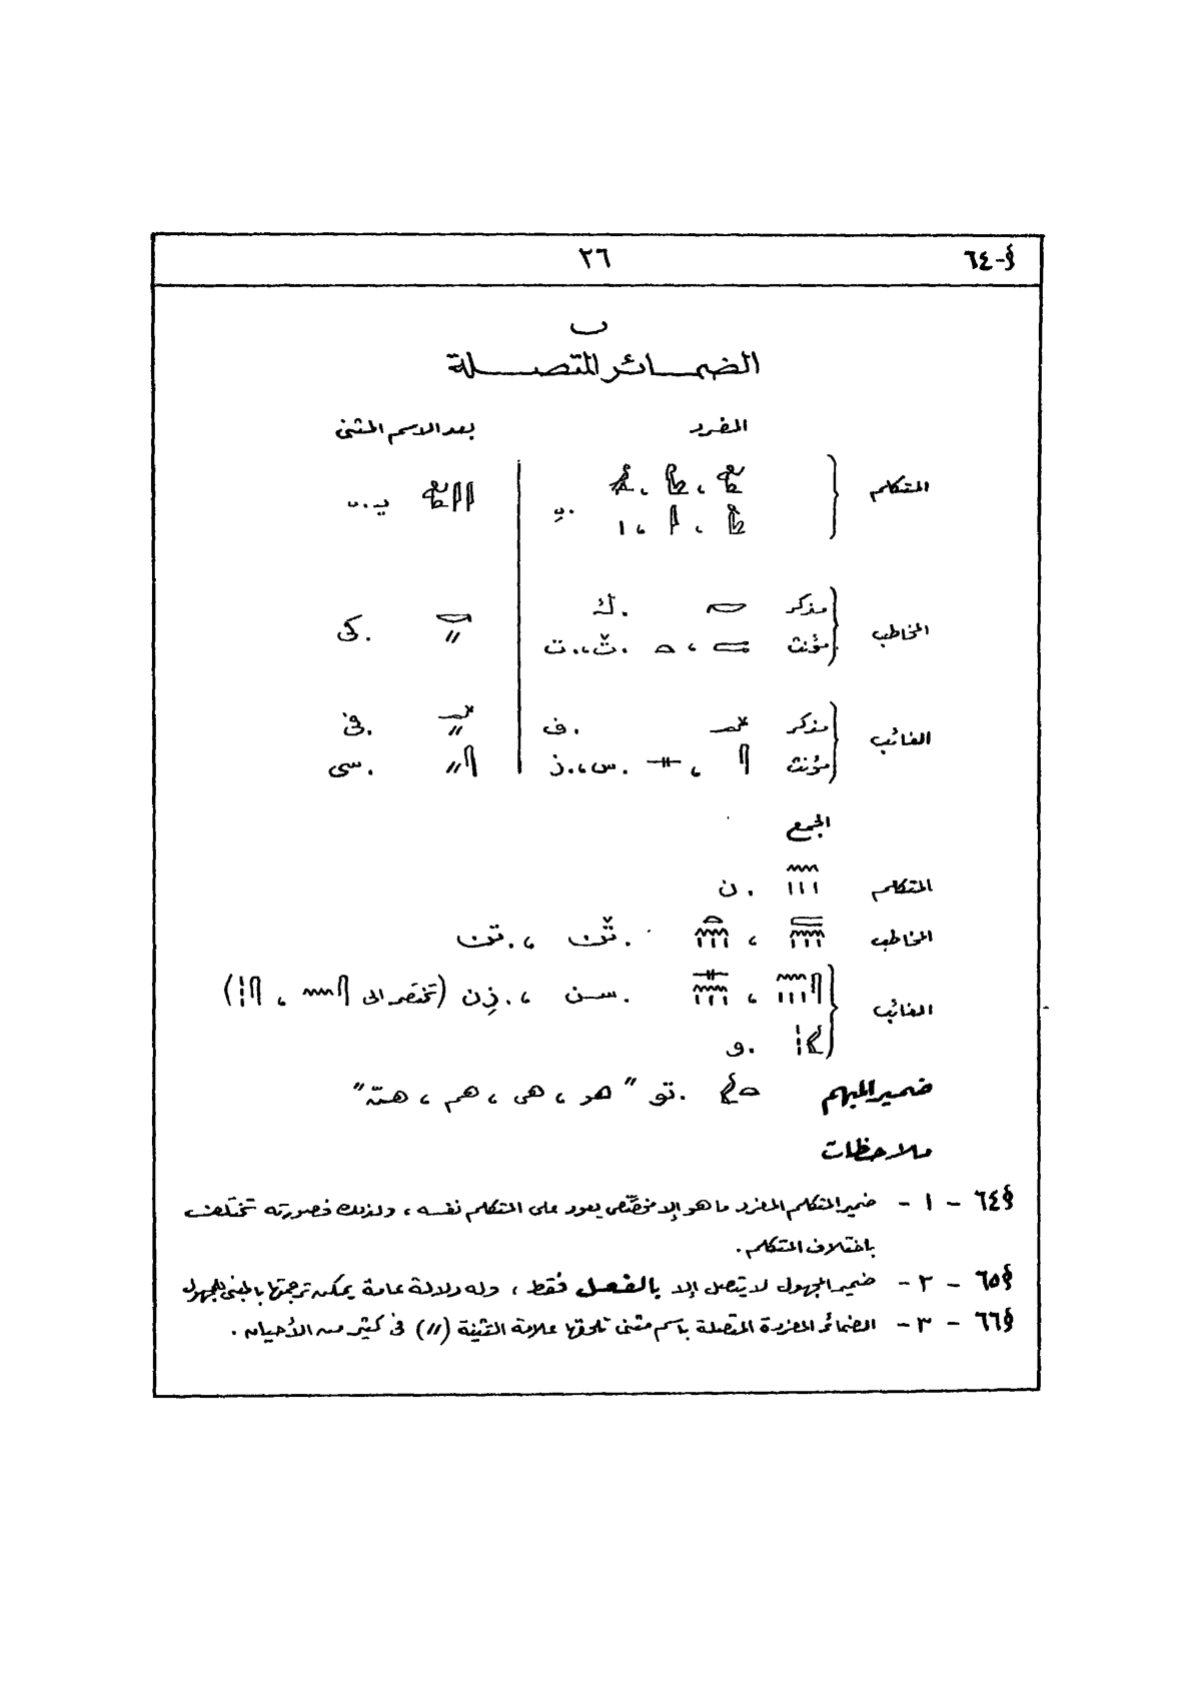 §-٦٤ ٢٦
ب
الضمائر المتصلة
المفرد بعد الاسم المثنى
المتكلم
المخاطب مذكر .ك .كى
مؤنث .ت̌ ، .ت
الغائب مذكر .ف .فى
مؤنث .س ، .ز .سى
الجمع
المتكلم .ن
المخاطب .ت̌ن ، .تن
الغائب .سن ، .زن (تختصر الى ، )
.و
ضمير المبهم .تو " هو ، هى ، هم ، هنّ "
ملاحظات
§٦٤ - ١ - ضمير المتكلم المفرد ما هو إلا مخصّص يعود على المتكلم نفسه ، ولذلك فصورته تختلف
باختلاف المتكلم .
§٦٥ - ٢ - ضمير المجهول لا يتصل إلا بالفعل فقط ، وله دلالة عامة يمكن ترجمتها بالمبنى للمجهول
§٦٦ - ٣ - الضمائر المفردة المتصلة باسم مثنى تلحقها علامة التثنية (\\) فى كثير من الأحيان .